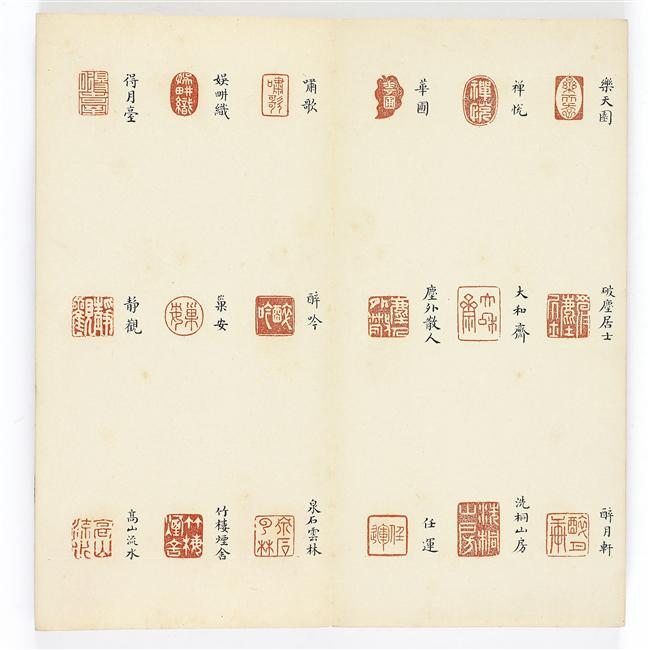 樂天園
禪悅
華園
破塵居士
大和齋
塵外散人
醉月軒
洗桐山房
任運
嘯歌
娛畊織
得月臺
醉吟
巢安
靜觀
泉石雲林
竹樓煙舍
高山流水